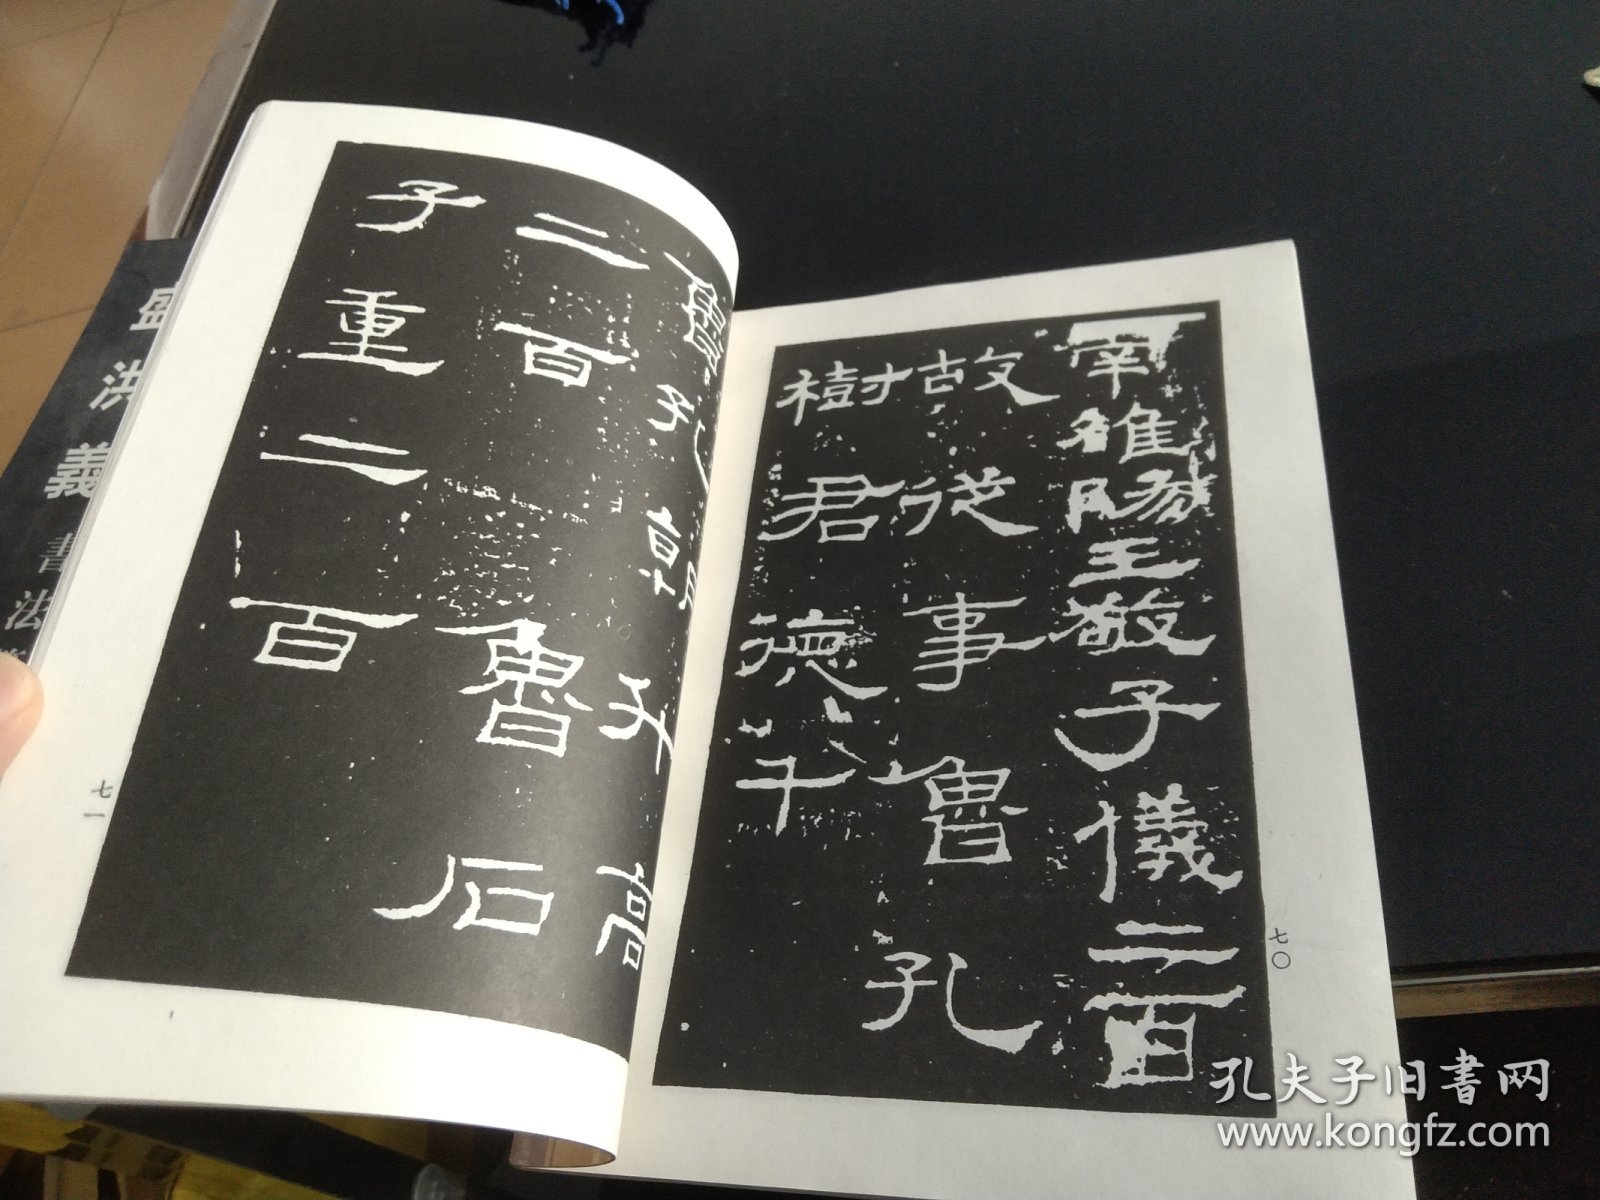 南雒陽王敬子儀二百
故從事魯孔
樹君德千
七〇
魯孔朝升高
二百 魯石
子重二百
七一
洪義書法
孔夫子旧書网
www.kongfz.com